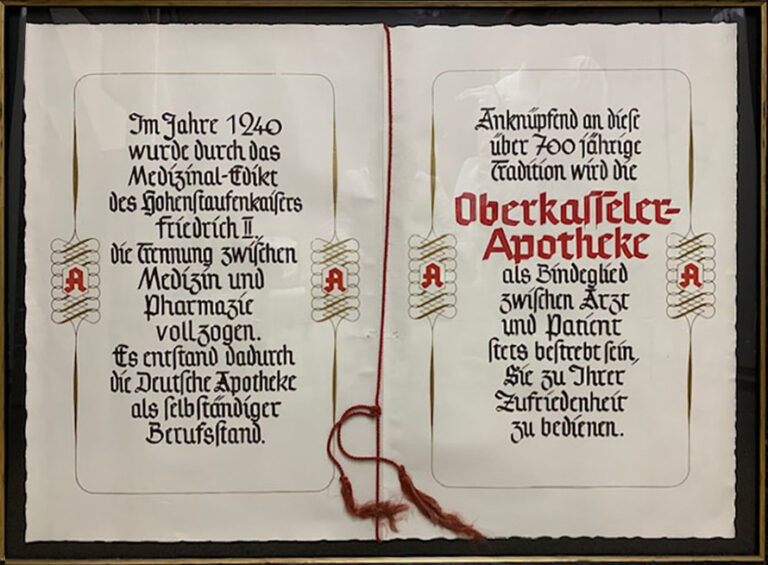 Im Jahre 1240
wurde durch das
Medizinal-Edikt
des Hohenstaufenkaisers
Friedrich II.
die Trennung zwischen
Medizin und
Pharmazie
vollzogen.
Es entstand dadurch
die Deutsche Apotheke
als selbständiger
Berufsstand.
A
A
Anknüpfend an diese
über 700 jährige
Tradition wird die
Oberkasseler-
Apotheke
als Bindeglied
zwischen Arzt
und Patient
stets bestrebt sein,
Sie zu Ihrer
Zufriedenheit
zu bedienen.
A
A